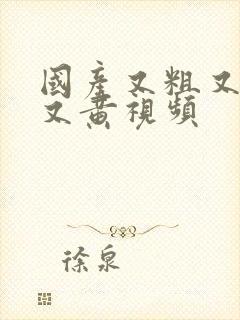 國產又粗又
又黃視頻
徐泉